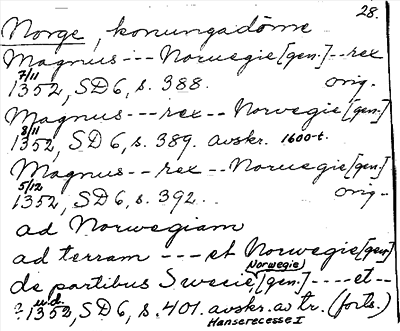 28.
Norge, konungadöme
Magnus --- Noruegie [gen.] -- rex
7/11
1352, SD 6, s. 388. orig.
Magnus --- rex -- Norwegie [gen.]
8/11
1352, SD 6, s. 389. avskr. 1600-t.
Magnus -- rex -- Noruegie [gen.]
5/12
1352, SD 6, s. 392. orig.
ad Norwegiam
ad terram --- et Norwegie [gen.]
(Norwegie)
de partibus Swecie, [gen.] ---- et --
u.d.
? 1352, SD 6, s. 401. avskr. av tr. (forts.)
Hanserecesse I